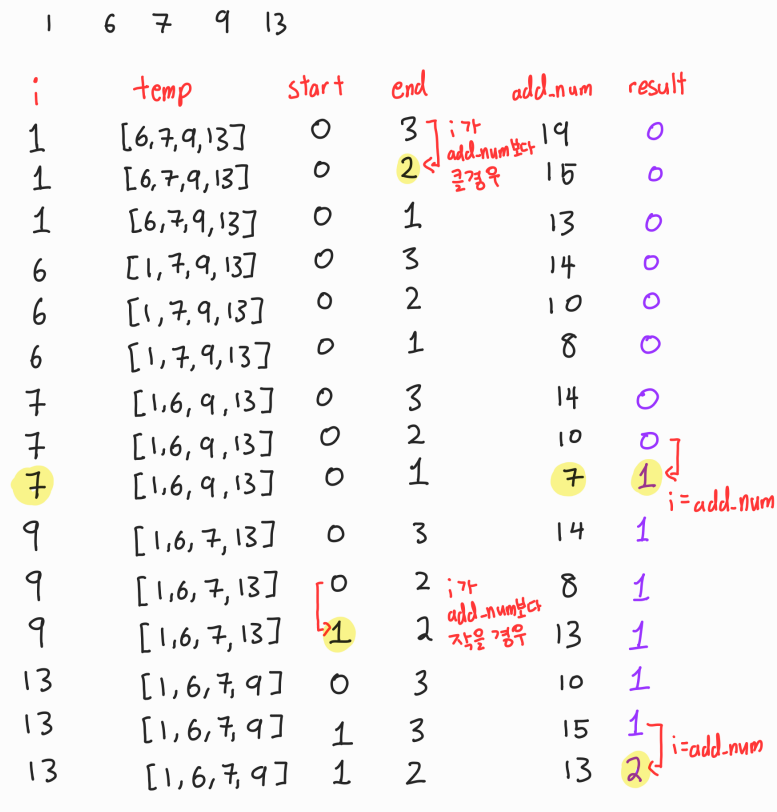 1 6 7 9 13
i temp start end add_num result
1 [6,7,9,13] 0 3 19 0
i가
add_num보다
클경우
1 [6,7,9,13] 0 2 15 0
1 [6,7,9,13] 0 1 13 0
6 [1,7,9,13] 0 3 14 0
6 [1,7,9,13] 0 2 10 0
6 [1,7,9,13] 0 1 8 0
7 [1,6,9,13] 0 3 14 0
7 [1,6,9,13] 0 2 10 0
7 [1,6,9,13] 0 1 7 1
i=add_num
9 [1,6,7,13] 0 3 14 1
9 [1,6,7,13] 0 2 8 1
i가
add_num보다
작을 경우
9 [1,6,7,13] 1 2 13 1
13 [1,6,7,9] 0 3 10 1
13 [1,6,7,9] 1 3 15 1
i=add_num
13 [1,6,7,9] 1 2 13 2